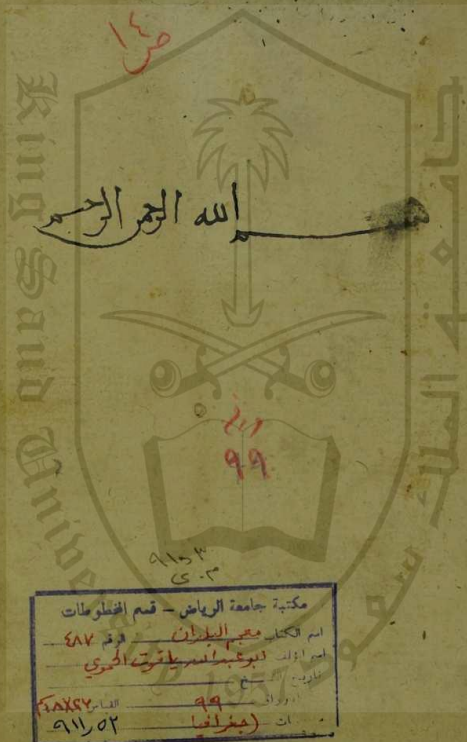 ص ١٤
بسم الله الرحمن الرحيم
٩٩
٩١٥٣
م.ي
مكتبة جامعة الرياض – قسم المخطوطات
اسم الكتاب معجم البلدان الرقم ٤٨٧
اسم المؤلف ابو عبد الله ياقوت الحموي
تاريخ النسخ
الاوراق ٩٩ القياس
ملاحظات (جغرافيا) ٩١١٫٥٣
جامعة الملك سعود
King Saud University
1957